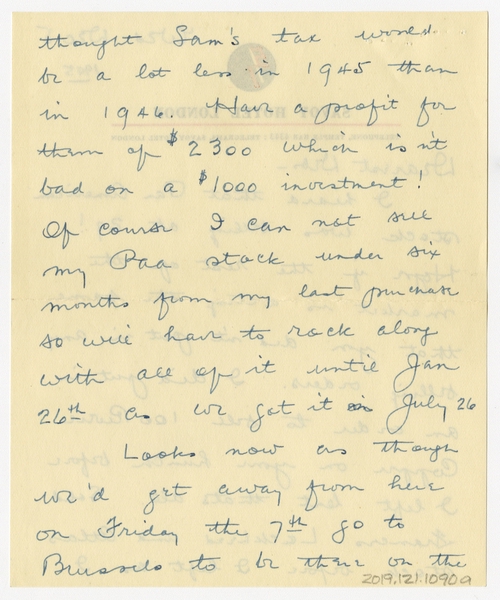 thought Sam's tax would
be a lot less in 1945 than
in 1946. Have a profit for
them of $2300 which isn't
bad on a $1000 investment!
Of course I can not sell
my Paa stock under six
months from my last purchase
so will have to rock along
with all of it until Jan
26th as we got it in July 26
Looks now as though
we'd get away from here
on Friday the 7th go to
Brussels to be there on the
2019.121.1090a